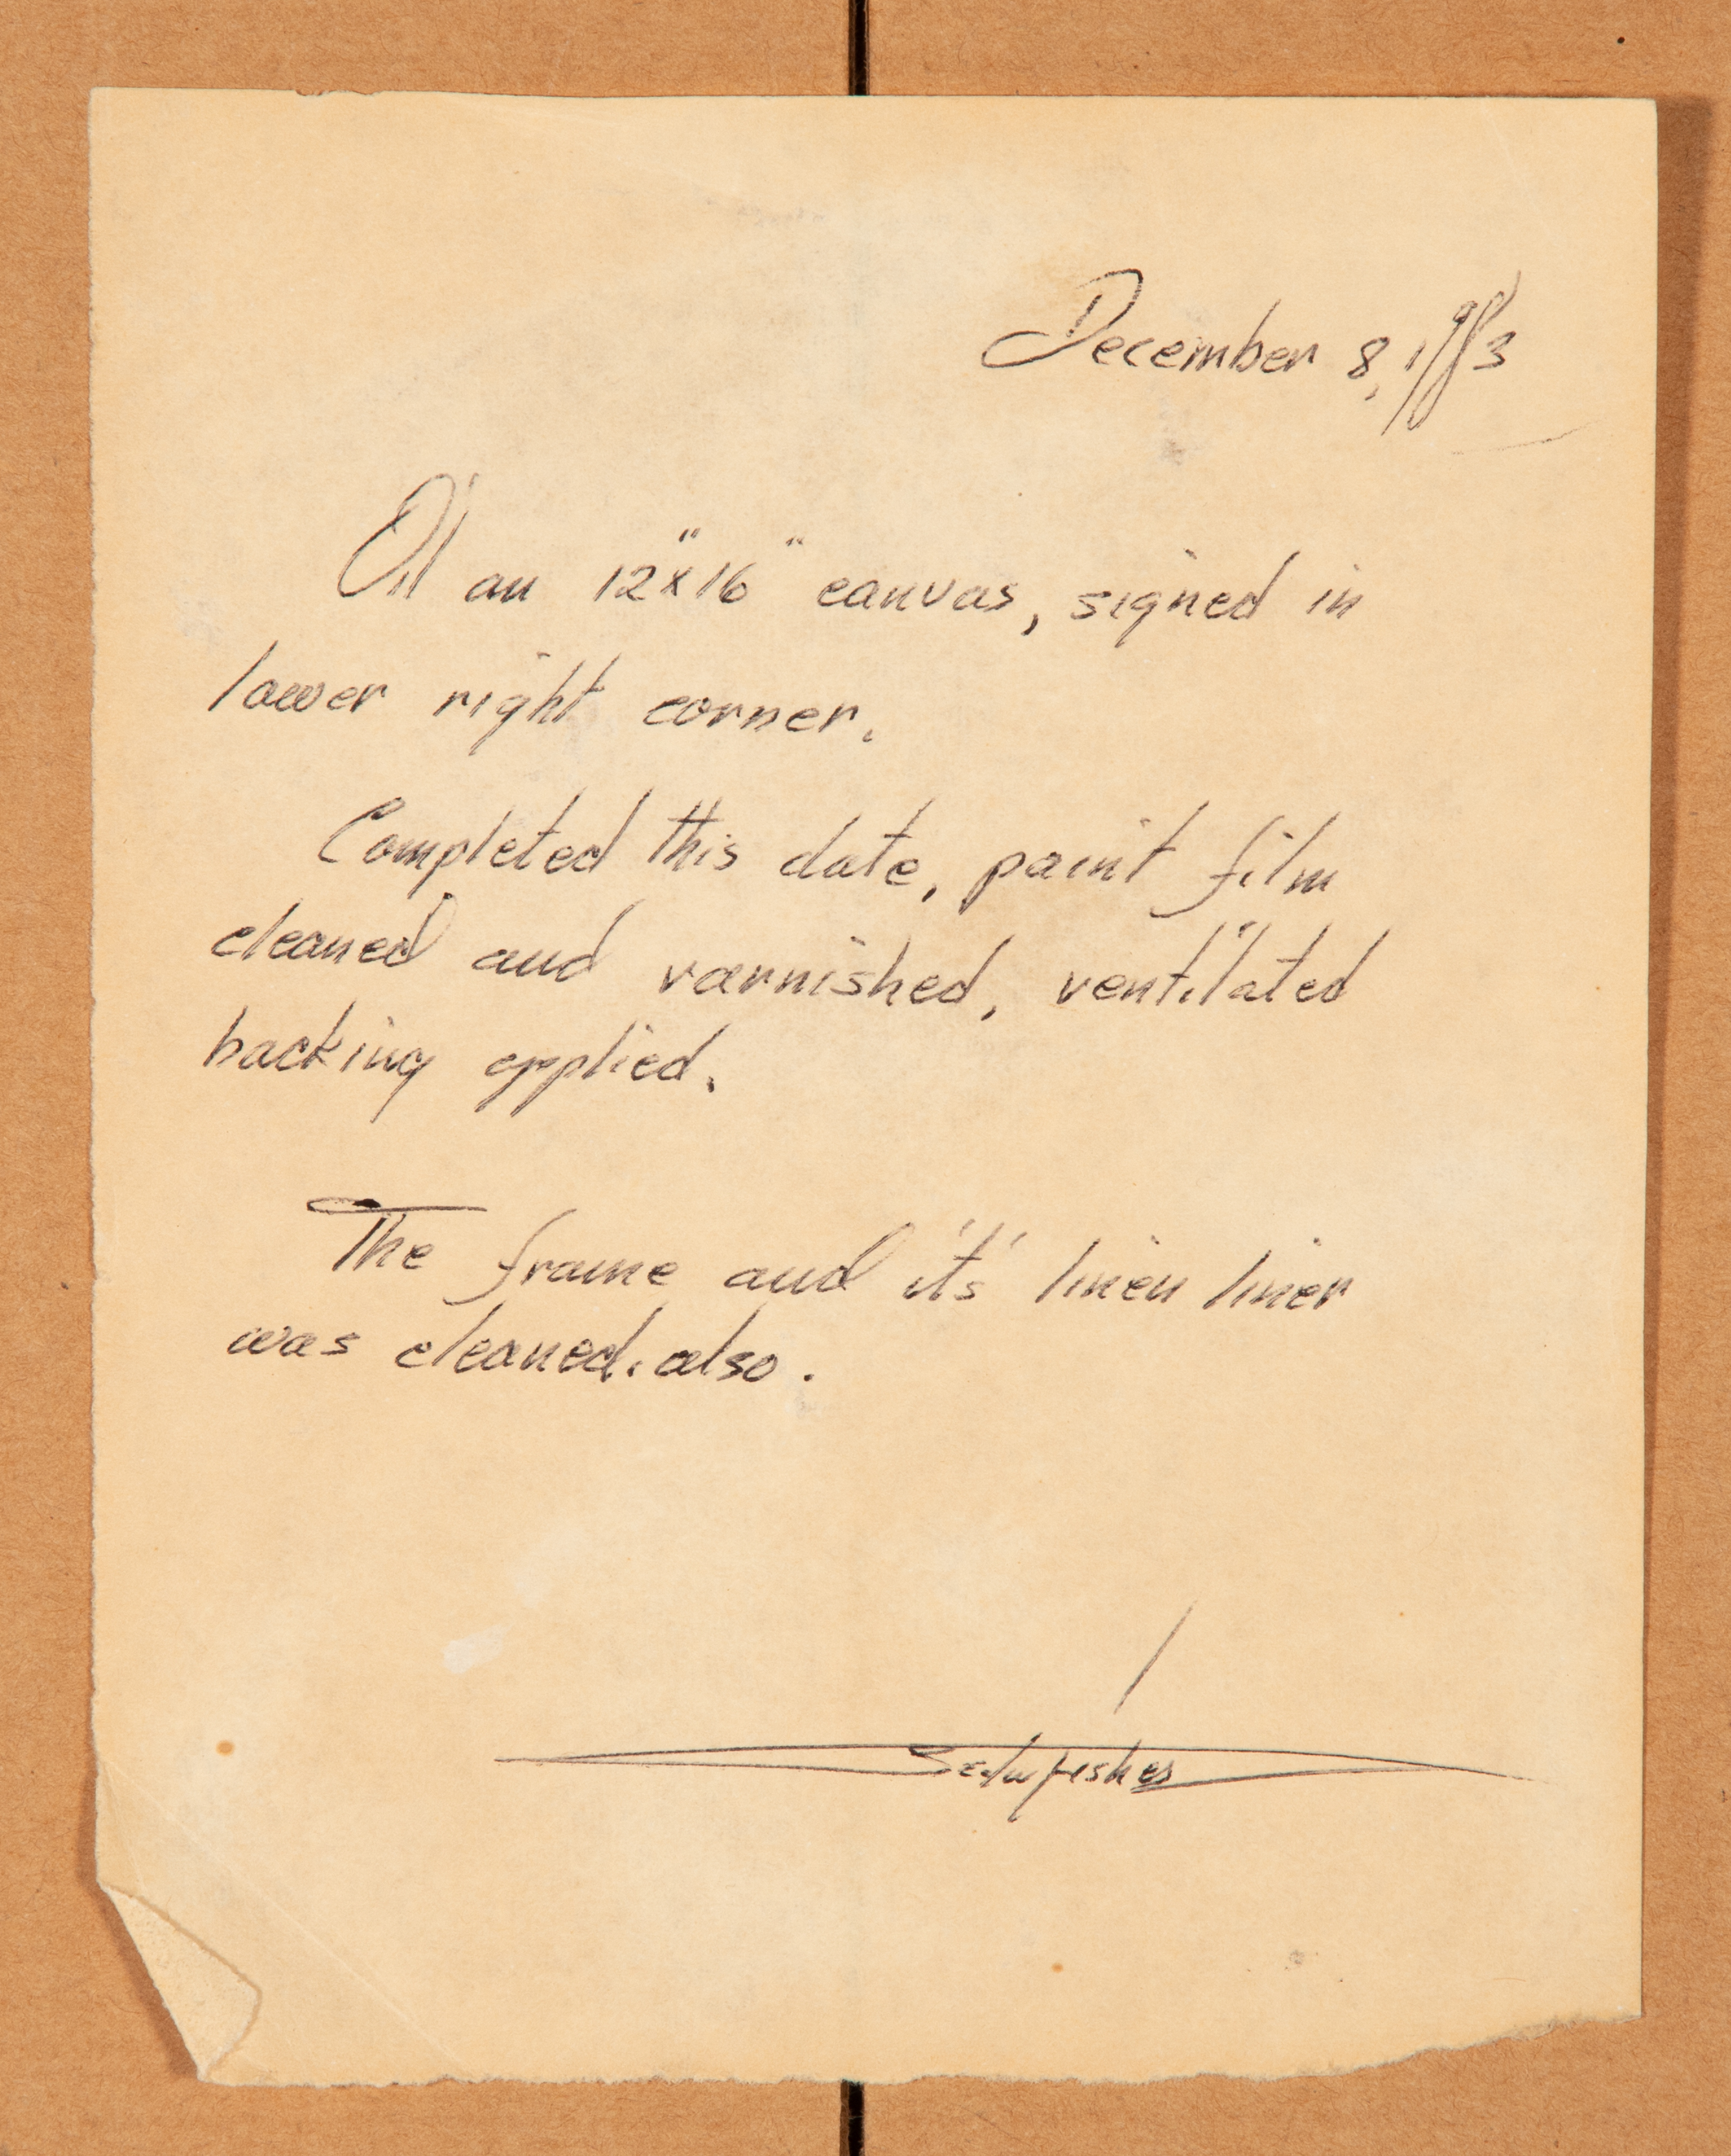 December 8, 1983
Oil on 12"x16" canvas, signed in
lower right corner.
Completed this date, paint film
cleaned and varnished, ventilated
backing applied.
The frame and it's linen liner
was cleaned. also.